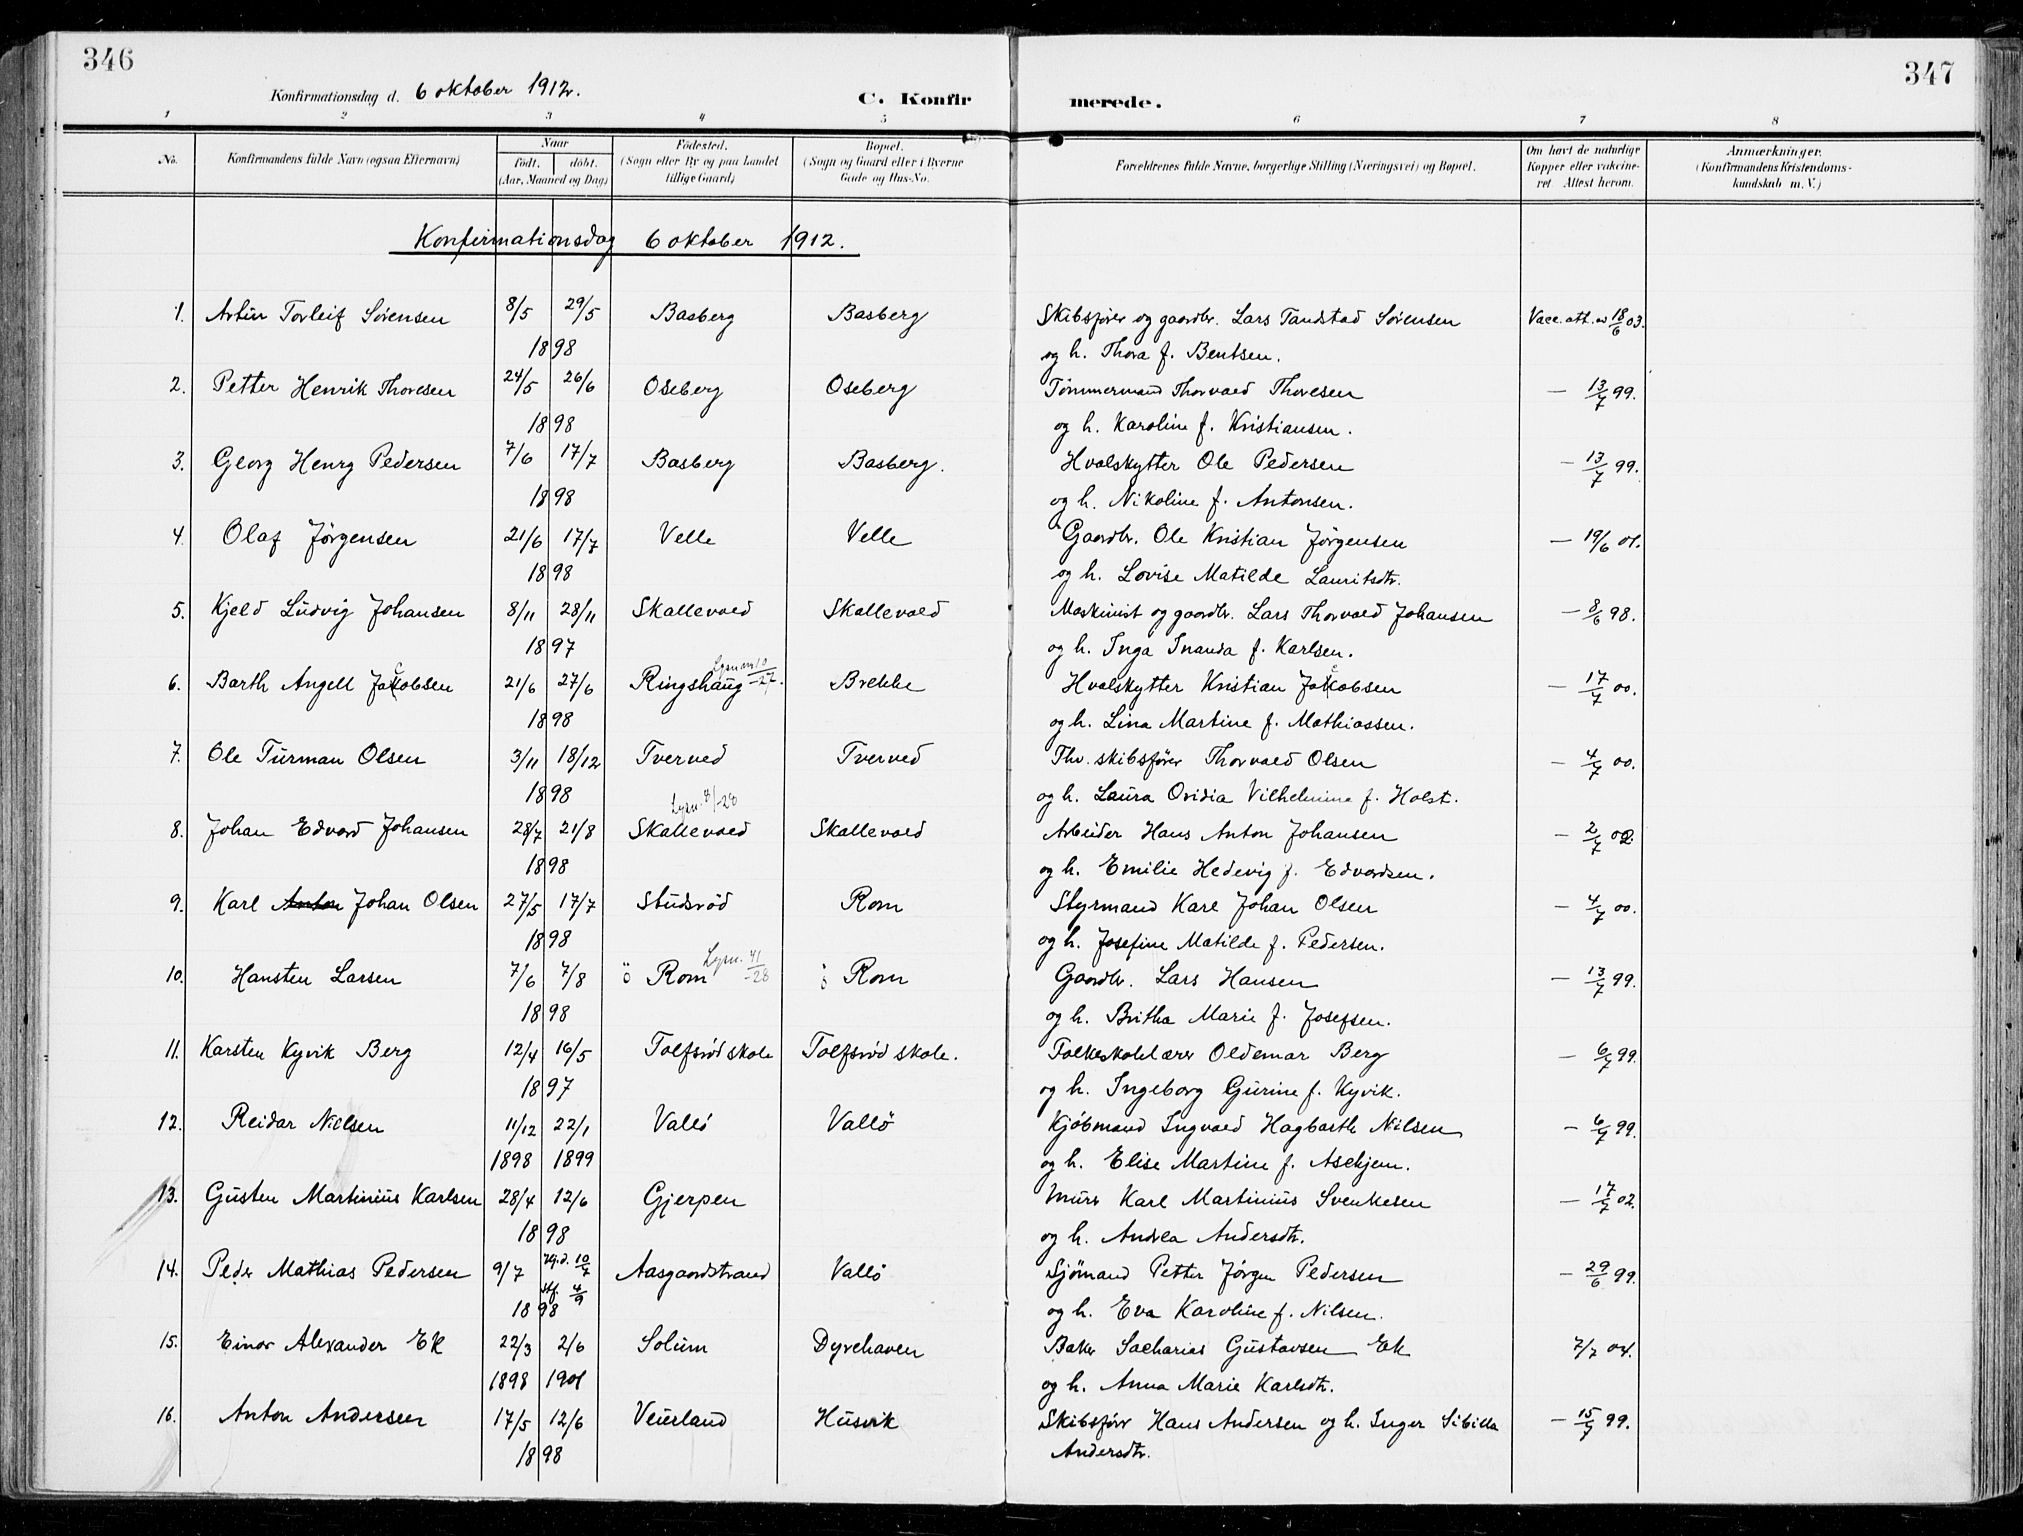 346
347
Konfirmationsdag d. 6 oktober 1912.
C. Konfirmerede.
1 2 3 4 5 6 7 8
No.
Konfirmandens fulde Navn (ogsaa Efternavn)
Naar
födt. döbt.
(Aar, Maaned og Dag)
Födested.
(Sogn eller By og paa Landet
tillige Gaard)
Bopæl.
(Sogn og Gaard eller i Byerne
Gade og Hus-No.
Forældrenes fulde Navne, borgerlige Stilling (Næringsvei) og Bopæl.
Om havt de naturlige
Kopper eller vakcine-
ret. Attest herom.
Anmærkninger.
(Konfirmandens Kristendoms-
kundskab m. V.)
Konfirmationsdag 6 oktober 1912.
1. Artur Torleif Sørensen 8/5 29/5 Basberg Basberg Skibsfører og gaardbr. Lars Tandstad Sørensen Vacc. att. av 18/6 03.
1898 og h. Thora f. Bentsen.
2. Petter Henrik Thoresen 24/5 26/6 Oseberg Oseberg Tømmermand Thorvald Thoresen — 13/7 99.
1898 og h. Karoline f. Kristiansen.
3. Georg Henry Pedersen 7/6 17/7 Basberg Basberg. Hvalskytter Ole Pedersen — 13/7 99.
1898 og h. Nikoline f. Antonsen.
4. Olaf Jørgensen 21/6 17/7 Velle Velle Gaardbr. Ole Kristian Jørgensen — 19/6 01.
1898 og h. Lovise Matilde Lauritsdtr.
5. Kjeld Ludvig Johansen 8/11 28/11 Skallevold Skallevold Maskinist og gaardbr. Lars Thorvald Johansen — 8/6 98.
1897 og h. Inga Inanda f. Karlsen.
6. Barth Angell Jacobsen 21/6 27/6 Ringshaug Brekke Hvalskytter Kristian Jacobsen — 17/7 00.
1898 og h. Lina Martine f. Mathiassen.
7. Ole Turman Olsen 3/11 18/12 Tverved Tverved Fhv. skibsfører Thorvald Olsen — 4/7 00.
1898 og h. Laura Ovidia Vilhelmine f. Holst.
8. Johan Edvard Johansen 28/7 21/8 Skallevold Skallevold Arbeider Hans Anton Johansen — 2/7 02.
1898 og h. Emilie Hedevig f. Edvardsen.
9. Karl Anton Johan Olsen 27/5 17/7 Studsrød Rom Styrmand Karl Johan Olsen — 4/7 00.
1898 og h. Josefine Matilde f. Pedersen.
10. Hansten Larsen 7/6 7/8 ö Rom Lysn. 41/-28 ö Rom Gaardbr. Lars Hansen — 13/7 99.
1898 og h. Britha Marie f. Josefsen.
11. Karsten Kyvik Berg 12/4 16/5 Tolfsrød skole Tolfsrød skole. Folkeskolelærer Oldemar Berg — 6/7 99.
1897 og h. Ingeborg Gurine f. Kyvik.
12. Reidar Nilsen 11/12 22/1 Vallö Vallö Kjøbmand Ingvald Hagbarth Nilsen — 6/7 99.
1898 1899 og h. Elise Martine f. Askjem.
13. Gusten Martinius Karlsen 28/4 12/6 Gjerpen Murer Karl Martinius Svenkesen — 17/7 02.
1898 og h. Andrea Andersdtr.
14. Peder Mathias Pedersen 9/7 Hj.d. 10/7 Stf. 4/9 Aasgaardstrand Vallö Sjömand Petter Jørgen Pedersen — 29/6 99.
1898 og h. Eva Karoline f. Nilsen.
15. Einar Alexander Ek 22/3 2/6 Solum Dyrehaven Baker Sacharias Gustavsen Ek 7/7 04.
1898 1901 og h. Anna Marie Karlsdtr.
16. Anton Andersen 17/5 12/6 Veierland Husvik Skibsfører Hans Andersen og h. Inger Sibilla — 15/7 99.
1898 Andersdtr.